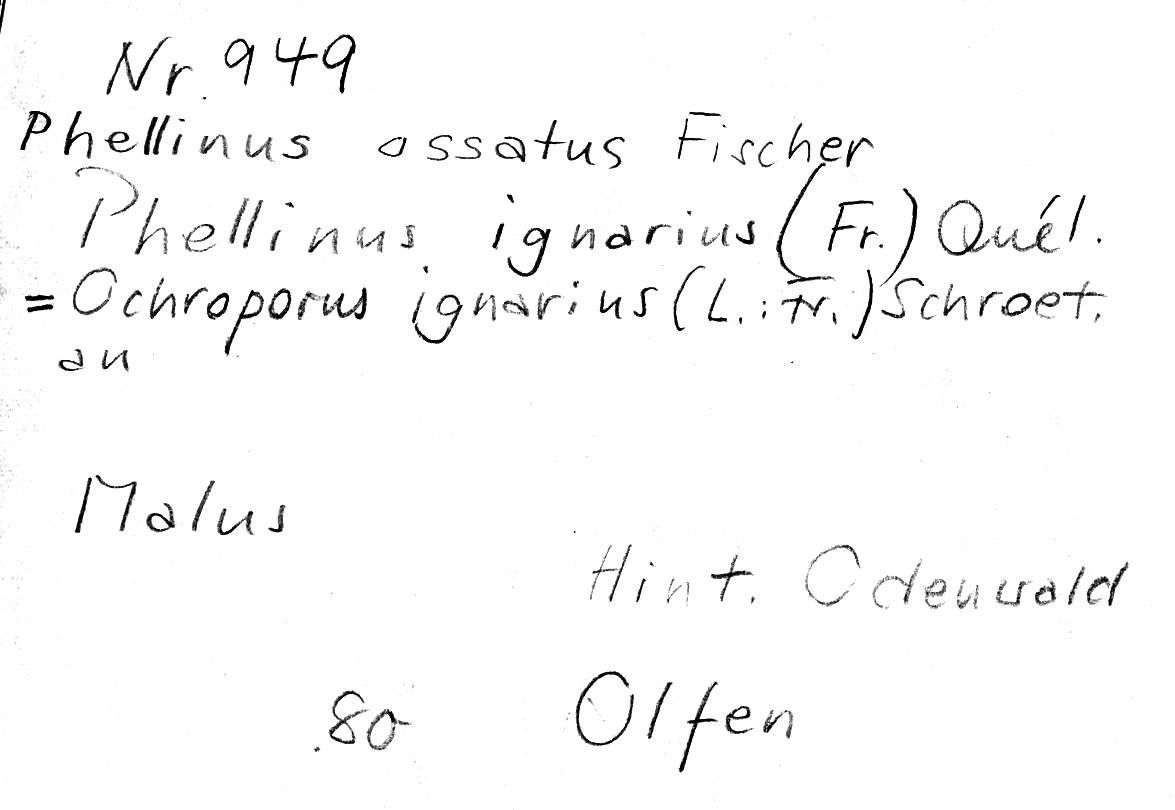 Nr. 949
Phellinus ossatus Fischer
Phellinus ignarius (Fr.) Quél.
= Ochroporus ignarius (L.: Fr.) Schroet.
an
Malus
Hint. Odenwald
.80 Olfen